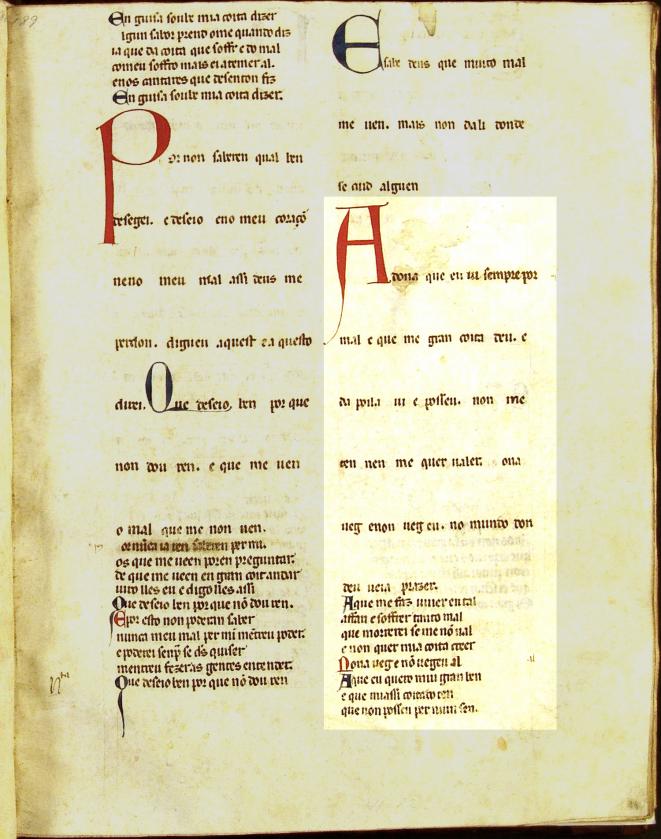 En guisa souke mia coita dizer
ia que da coita que soffr e do mal
comeu soffro mais ei atemer al.
enos cantares que desenton fiz
En guisa souke mia coita dizer.
Por non saberen qual ben
desegei. e deseio eno meu coraçõ
neno meu mal assi deus me
perdon. digueu aquest e a questo
direi. Que deseio ben por que
non dou ren. e que me uen
o mal que me non uen.
ia ren saberen per mi.
os que me ueen poren preguntar.
de que me ueen en gram coit andar
uiro lles eu e digo lles assi
Que deseio ben por que nõ dou ren.
Epor esto non poderan saber
nunca meu mal per mi mẽtreu poder.
e poderei senp̃ se ds̃ quiser
mentreu fezer as gentes entender.
Que deseio ben por que nõ dou ren
Esabe deus que muito mal
me uen. mais non dali donde
se cuid alguen
A dona que eu ui sempre por
mal e que me gran coita deu. e
da poila ui e posseu. non me
ten nen me quer ualer. ona
ueg enon ueg eu. no mundo don
deu ueia prazer.
Aque me faz uiuer en tal
affan e soffrer tanto mal
que morrerei se me nõ ual
e non quer mia coita creer
Nona ueg e nõ uegeu al
Aque eu quero mui gran ben
e que massi coitado ten
que non posseu per nium sen.